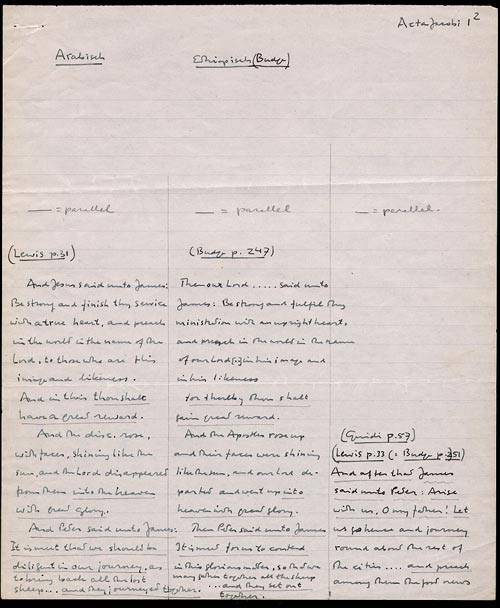 Acta Jacobi 1 2
Arabisch
Ethiopisch (Budge)
— = parallel
(Lewis p.31)
And Jesus said unto James:
Be strong and finish thy service
with a true heart, and preach
in the world in the name of the
Lord, to those who are this
image and likeness.
And in this thou shalt
have a great reward.
And the disc. rose,
with faces, shining like the
sun, and the Lord disappeared
from them into the heaven
with great glory.
And Peter said unto James:
It is meet that we should be
diligent in our journey, as
to bring back all the lost
sheep... and they journeyed together.
— = parallel
(Budge p. 247)
Then our Lord ..... said unto
James: Be strong and fulfil thy
ministration with an upright heart,
and preach in the world in the name
of our Lord in his image and
in his likeness
for thereby thou shalt
gain great reward.
And the Apostles rose up
and their faces were shining
like the sun, and our Lord de-
parted and went up into
heaven with great glory.
Then Peter said unto James
It is meet for us to contend
in this glorious matter, so that we
may gather together all the sheep
... and they set out
together.
— = parallel.
(Guidi p.57)
(Lewis p.33 (: Budge p. 251)
And after that James
said unto Peter: Arise
with us, O my father! Let
us go hence and journey
round about the rest of
the cities .... and preach
among them the good news